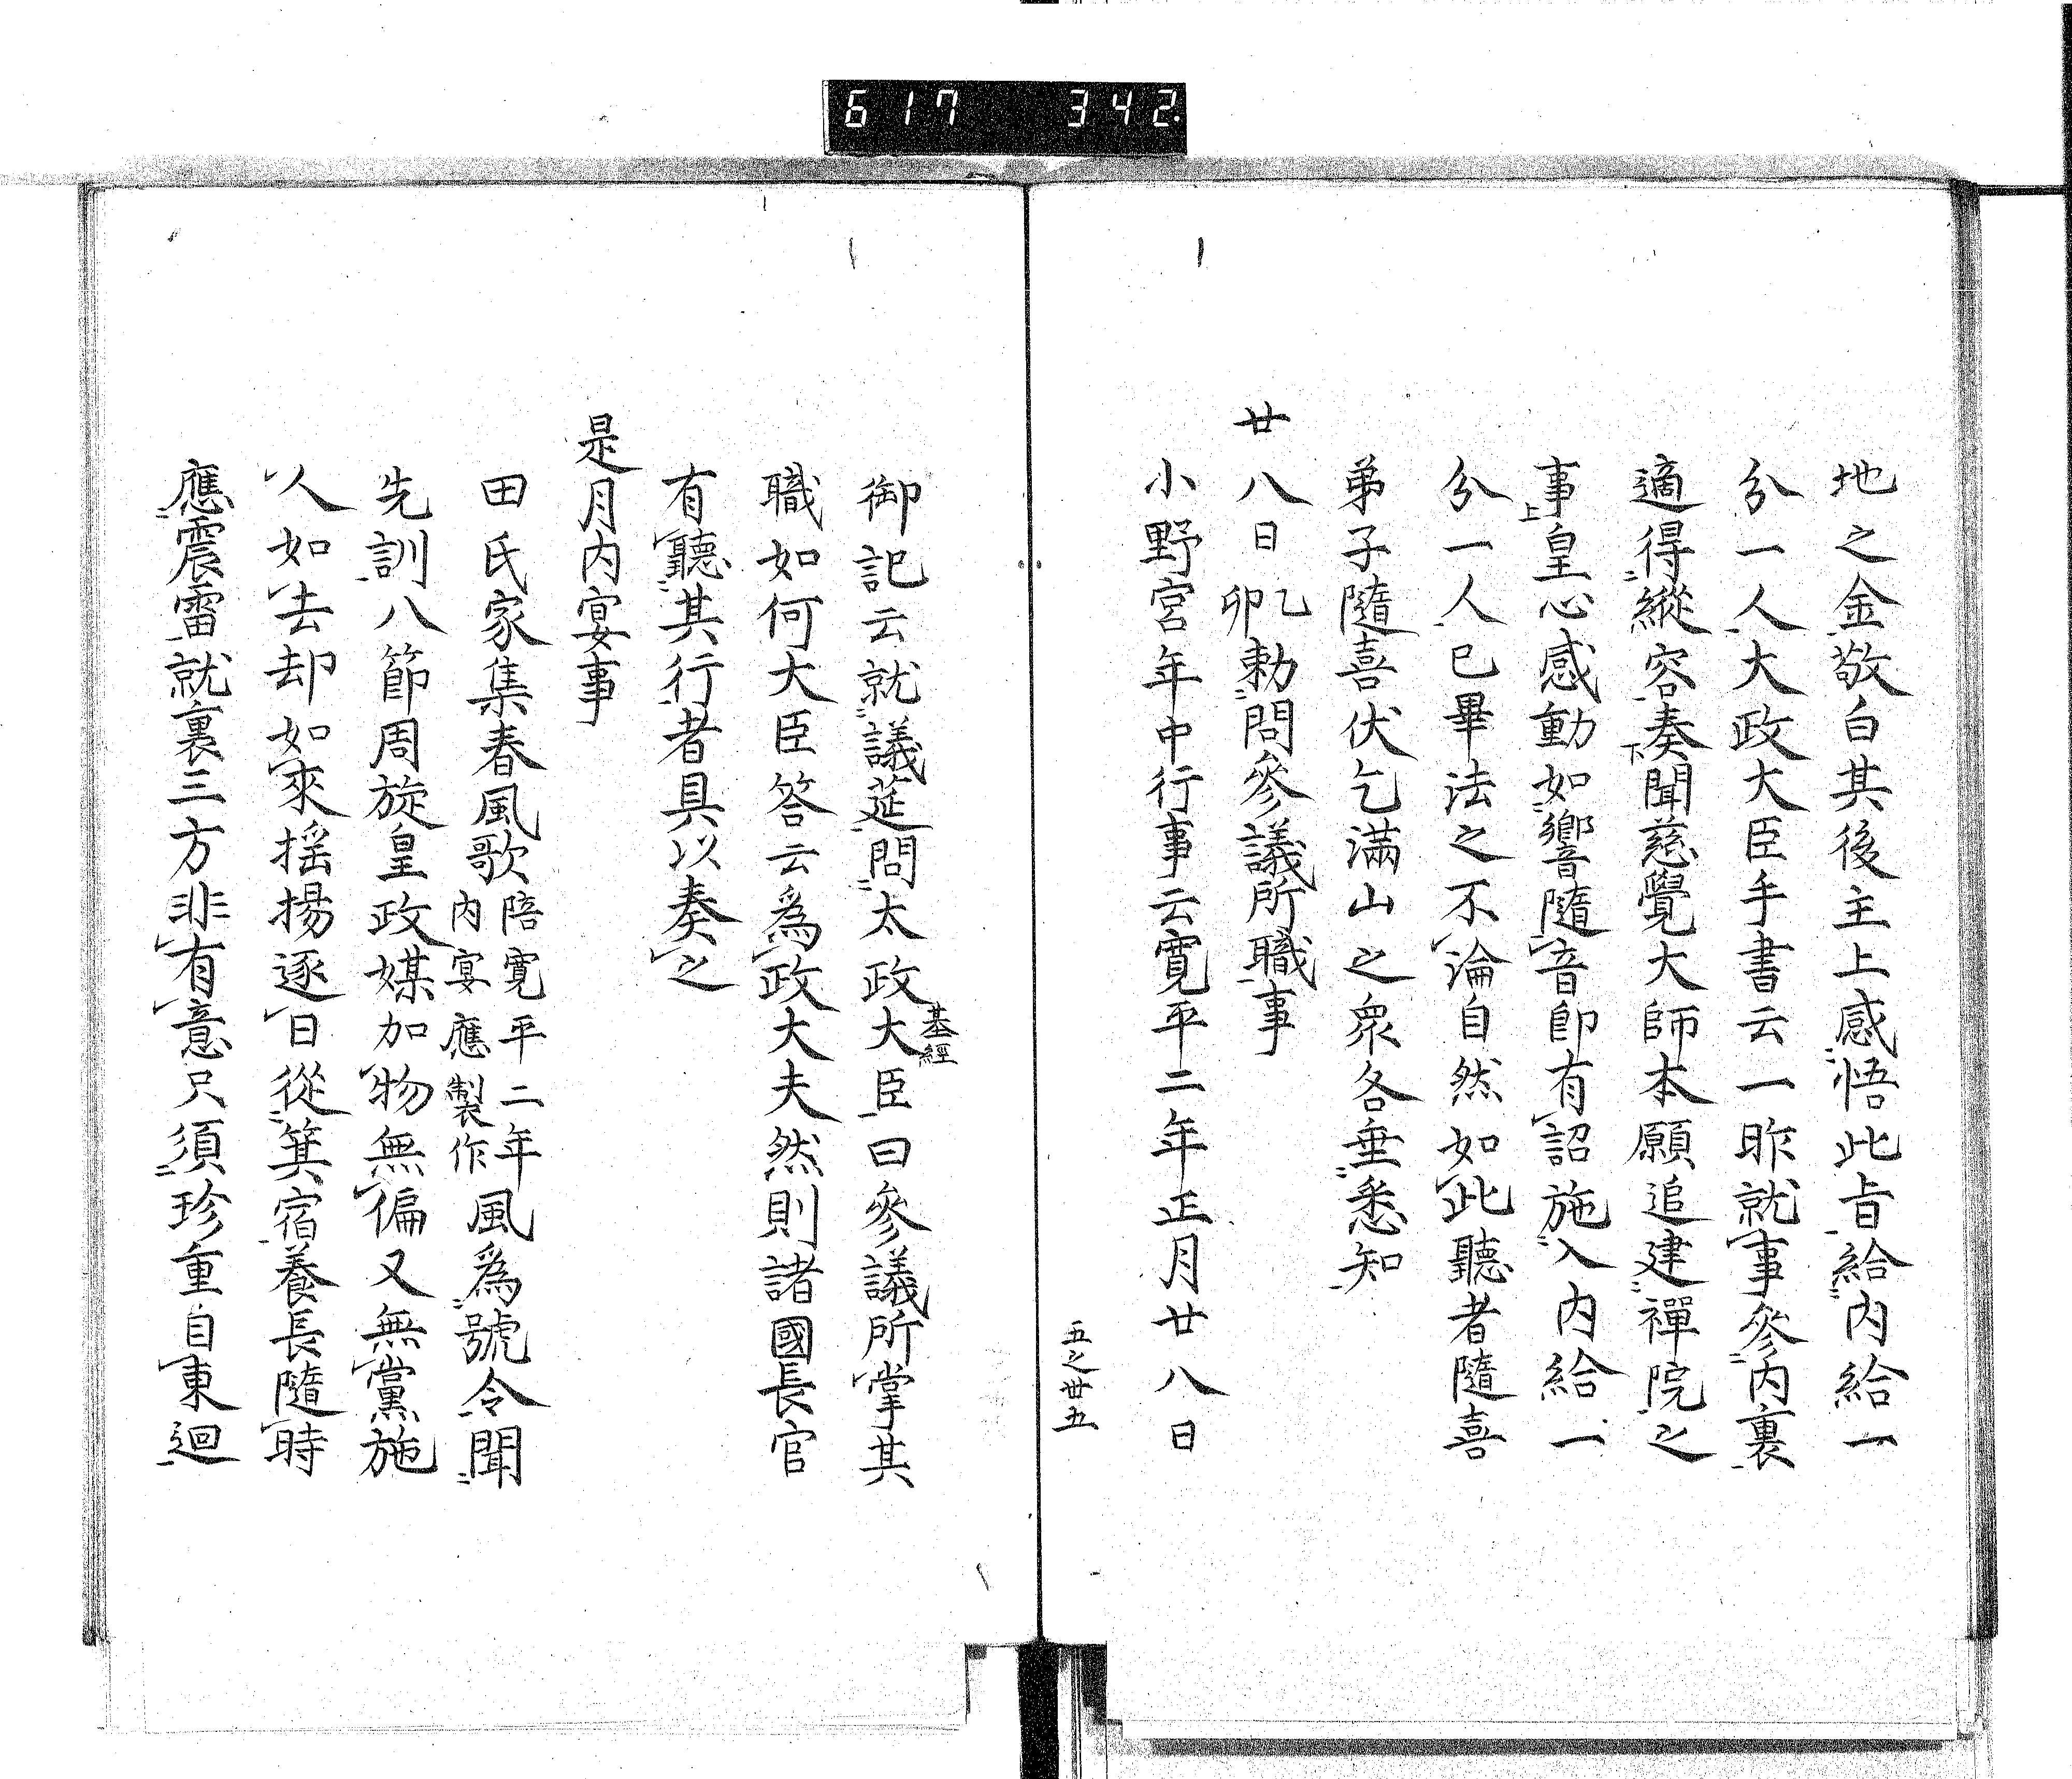 617 342.
地之金敬白其後主上感悟此旨給内給一
分一人大政大臣手書云一昨就事參内裏
適得縱容奏聞慈覺大師本願追建禪院之
事皇心感動如響隨音即有詔施入内給一
分一人已畢法之不淪自然如此聽者隨喜
弟子隨喜伏乞滿山之衆各垂悉知
廿八日乙卯勅問參議所職事
小野宮年中行事云寛平二年正月廿八日
五之卅五
御記云就議莚問太政大臣曰參議所掌其
基經
職如何大臣答云爲政大夫然則諸國長官
有聽其行者具以奏之
是月内宴事
田氏家集春風歌陪寛平二年内宴應製作風爲號令聞
先訓八節周旋皇政媒加物無偏又無黨施
人如去却如來揺揚逐日從箕宿養長隨時
應震雷就裏三方非有意只須珍重自東迴